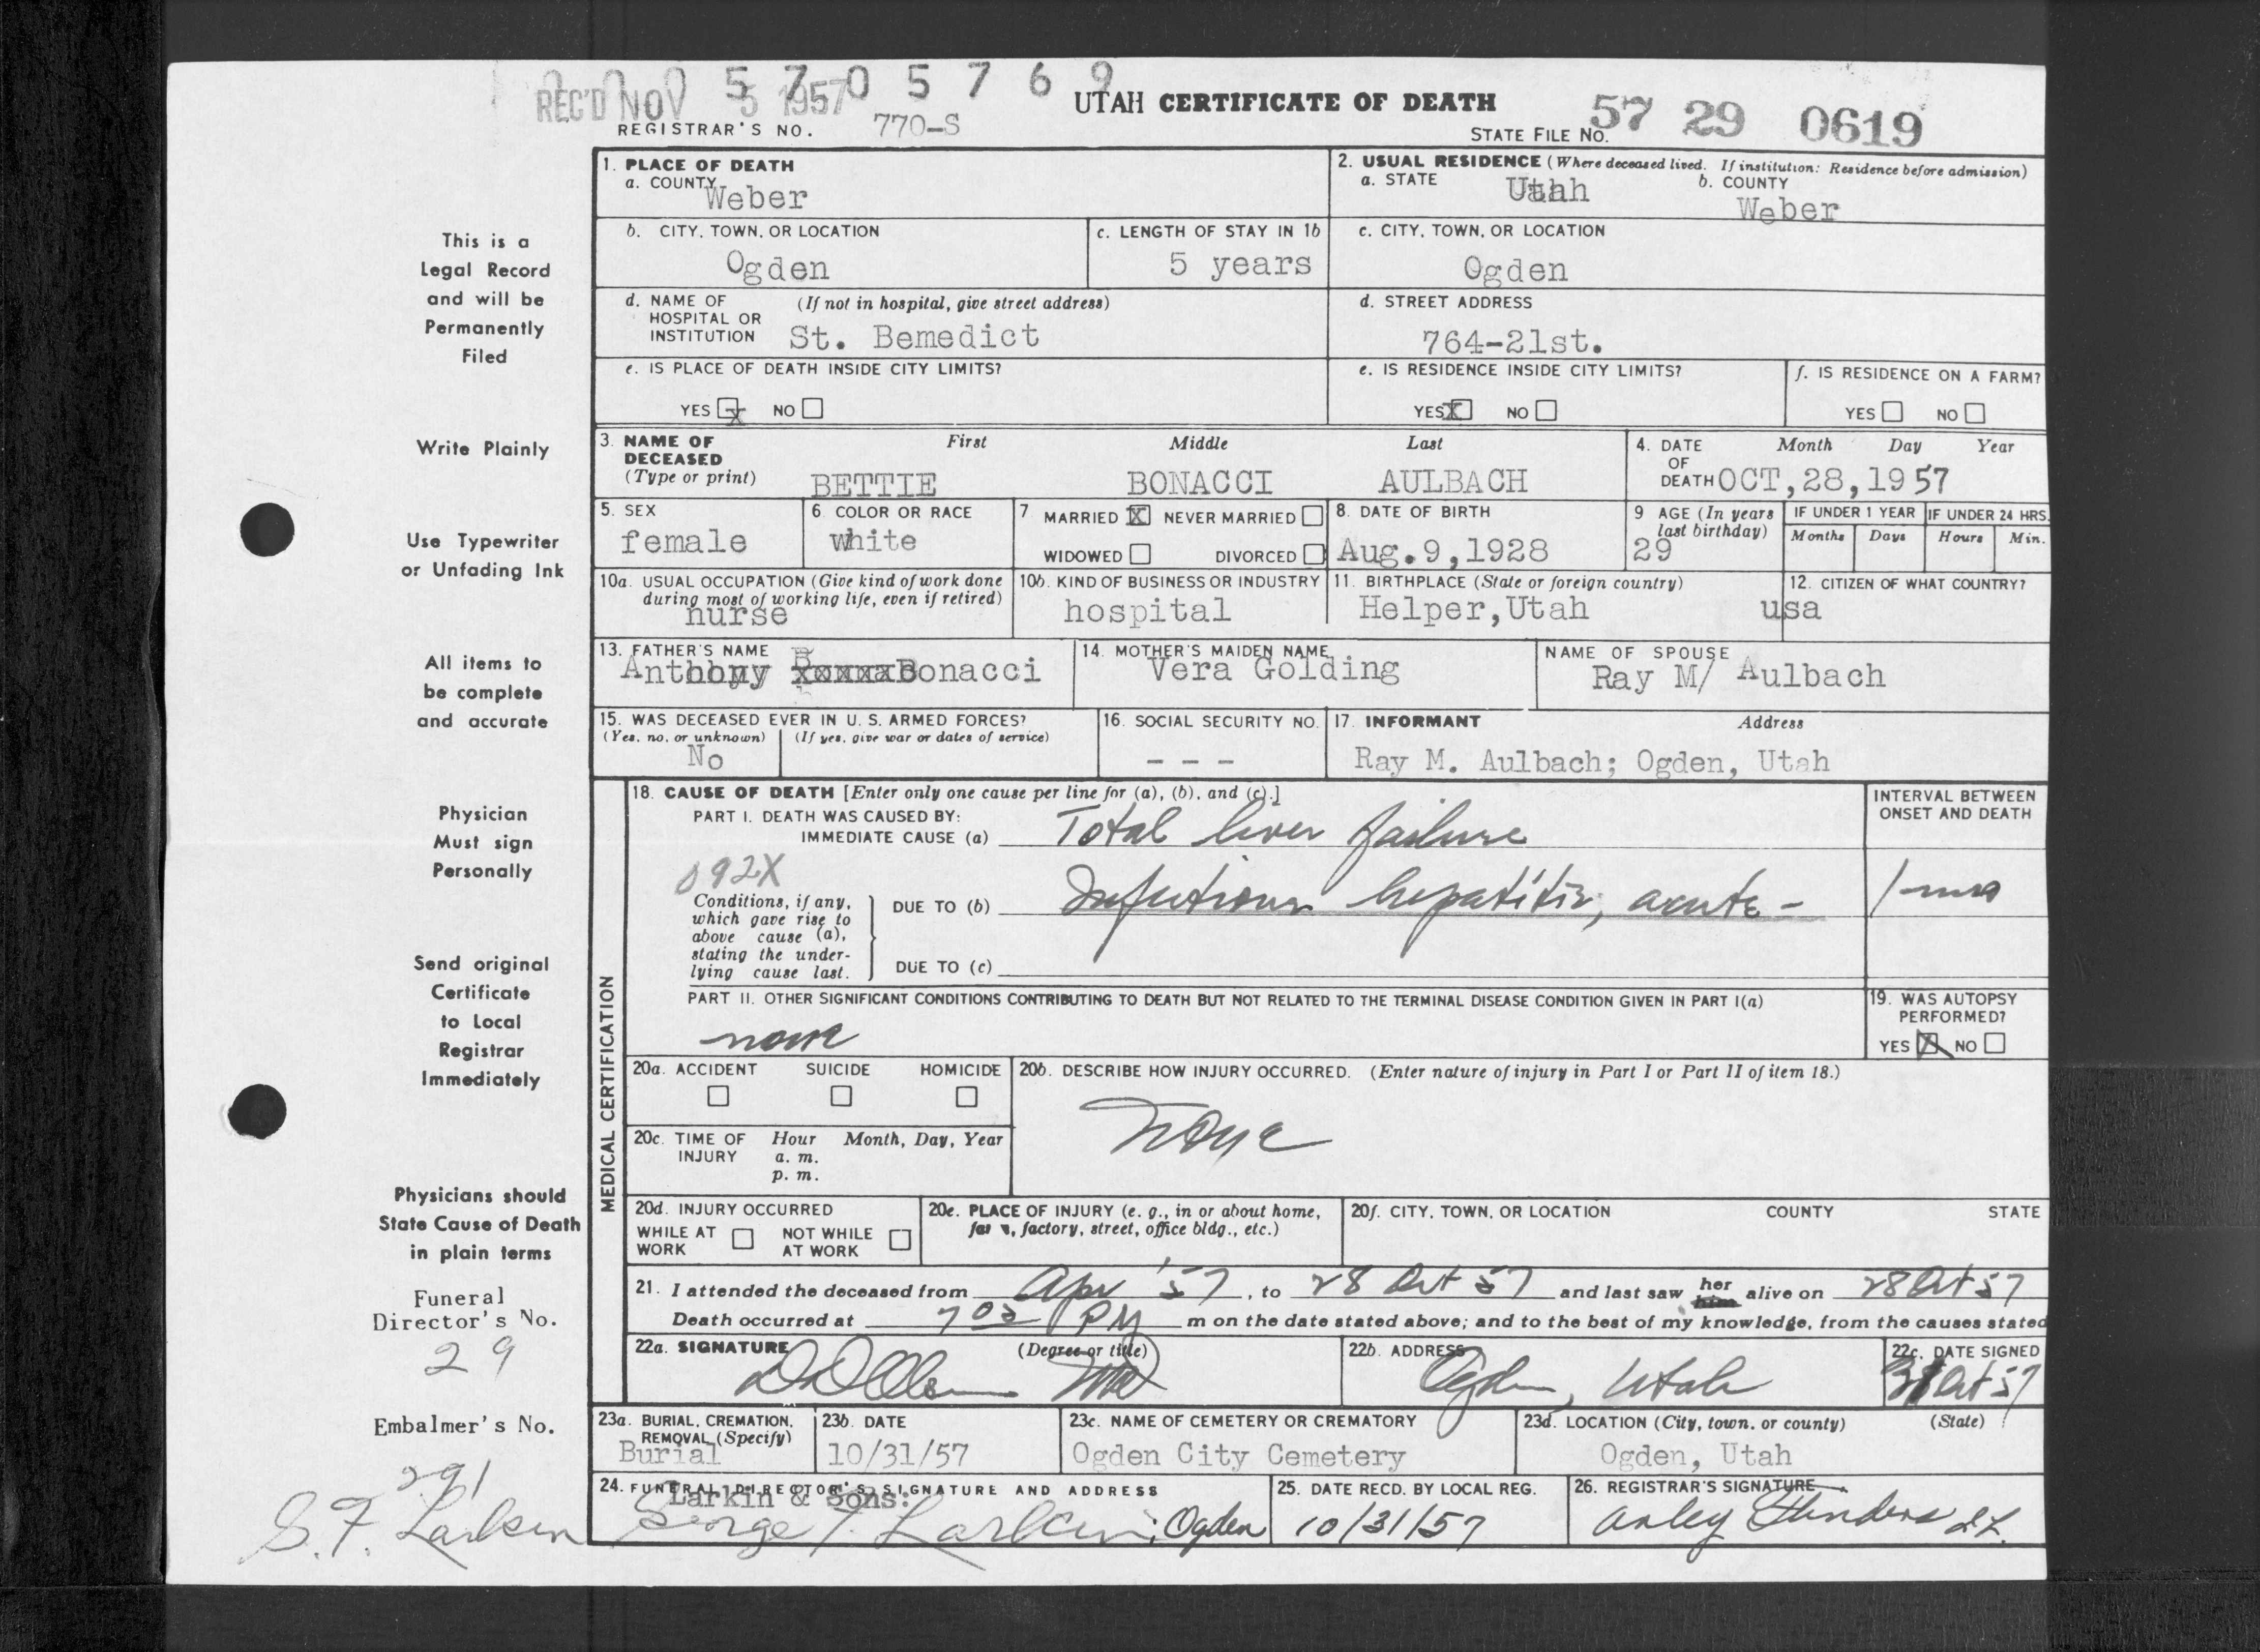 0 0 0 5 7 0 5 7 6 9
REC'D NOV 5 1957
UTAH CERTIFICATE OF DEATH
REGISTRAR'S NO. 770-S
STATE FILE NO. 57 29 0619
1. PLACE OF DEATH
a. COUNTY Weber
2. USUAL RESIDENCE (Where deceased lived. If institution: Residence before admission)
a. STATE Utah b. COUNTY Weber
b. CITY, TOWN, OR LOCATION Ogden
c. LENGTH OF STAY IN 1b 5 years
c. CITY, TOWN, OR LOCATION Ogden
d. NAME OF HOSPITAL OR INSTITUTION (If not in hospital, give street address) St. Bemedict
d. STREET ADDRESS 764-21st.
e. IS PLACE OF DEATH INSIDE CITY LIMITS?
YES X NO
e. IS RESIDENCE INSIDE CITY LIMITS?
YES X NO
f. IS RESIDENCE ON A FARM?
YES NO
3. NAME OF DECEASED (Type or print)
First Middle Last
BETTIE BONACCI AULBACH
4. DATE OF DEATH Month Day Year
OCT,28,1957
5. SEX female
6. COLOR OR RACE white
7. MARRIED X NEVER MARRIED
WIDOWED DIVORCED
8. DATE OF BIRTH Aug.9,1928
9 AGE (In years last birthday) 29
IF UNDER 1 YEAR Months Days
IF UNDER 24 HRS. Hours Min.
10a. USUAL OCCUPATION (Give kind of work done during most of working life, even if retired) nurse
10b. KIND OF BUSINESS OR INDUSTRY hospital
11. BIRTHPLACE (State or foreign country) Helper,Utah
12. CITIZEN OF WHAT COUNTRY? usa
13. FATHER'S NAME Anthony Bonacci
14. MOTHER'S MAIDEN NAME Vera Golding
NAME OF SPOUSE Ray M/ Aulbach
15. WAS DECEASED EVER IN U. S. ARMED FORCES?
(Yes, no, or unknown) (If yes, give war or dates of service)
No
16. SOCIAL SECURITY NO. - - -
17. INFORMANT Address
Ray M. Aulbach; Ogden, Utah
MEDICAL CERTIFICATION
18. CAUSE OF DEATH [Enter only one cause per line for (a), (b), and (c).]
INTERVAL BETWEEN ONSET AND DEATH
PART I. DEATH WAS CAUSED BY:
IMMEDIATE CAUSE (a) Total liver failure
092X
Conditions, if any, which gave rise to above cause (a), stating the underlying cause last.
DUE TO (b) Infectious hepatitis, acute -
DUE TO (c)
PART II. OTHER SIGNIFICANT CONDITIONS CONTRIBUTING TO DEATH BUT NOT RELATED TO THE TERMINAL DISEASE CONDITION GIVEN IN PART I(a)
none
19. WAS AUTOPSY PERFORMED?
YES X NO
20a. ACCIDENT SUICIDE HOMICIDE
20b. DESCRIBE HOW INJURY OCCURRED. (Enter nature of injury in Part I or Part II of item 18.)
None
20c. TIME OF INJURY Hour Month, Day, Year
a. m.
p. m.
20d. INJURY OCCURRED
WHILE AT WORK NOT WHILE AT WORK
20e. PLACE OF INJURY (e. g., in or about home, farm, factory, street, office bldg., etc.)
20f. CITY, TOWN, OR LOCATION COUNTY STATE
21. I attended the deceased from Apr '57, to 28 Oct 57 and last saw her him alive on 28 Oct 57
Death occurred at 7 02 PM m on the date stated above; and to the best of my knowledge, from the causes stated
22a. SIGNATURE (Degree or title) MD
22b. ADDRESS Ogden, Utah
22c. DATE SIGNED 31 Oct 57
23a. BURIAL, CREMATION, REMOVAL (Specify) Burial
23b. DATE 10/31/57
23c. NAME OF CEMETERY OR CREMATORY Ogden City Cemetery
23d. LOCATION (City, town, or county) (State) Ogden, Utah
24. FUNERAL DIRECTOR'S SIGNATURE AND ADDRESS
Larkin & Sons:
George T. Larkin; Ogden
25. DATE RECD. BY LOCAL REG. 10/31/57
26. REGISTRAR'S SIGNATURE
This is a
Legal Record
and will be
Permanently
Filed
Write Plainly
Use Typewriter
or Unfading Ink
All items to
be complete
and accurate
Physician
Must sign
Personally
Send original
Certificate
to Local
Registrar
Immediately
Physicians should
State Cause of Death
in plain terms
Funeral
Director's No.
29
Embalmer's No.
291
S.F. Larkin